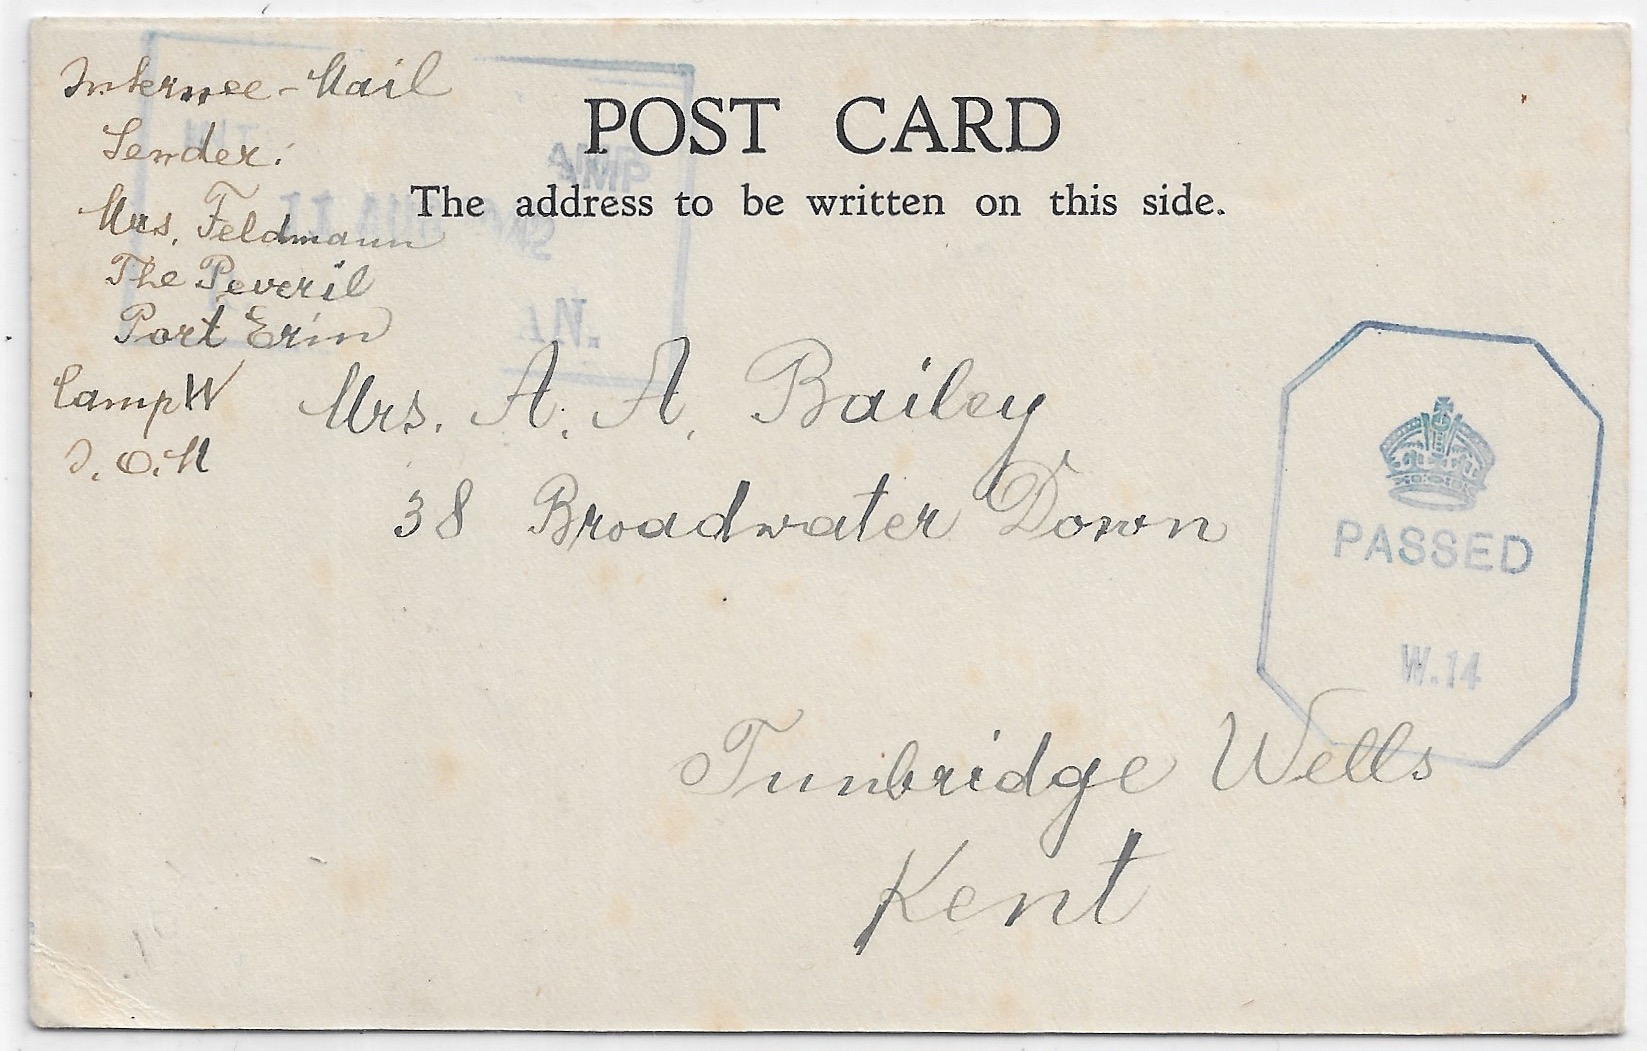 Internee-Mail
Sender:
Mrs. Feldmann
The Peveril
Port Erin
Camp W
I.O.M
POST CARD
The address to be written on this side.
AMP
N.
Mrs. A. A. Bailey
38 Broadwater Down
Tunbridge Wells
Kent
PASSED
W.14